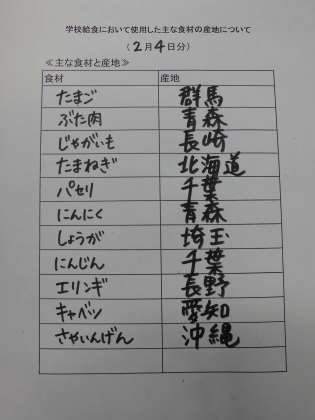 学校給食において使用した主な食材の産地について
(2月4日分)
≪主な食材と産地≫
食材 産地
たまご 群馬
ぶた肉 青森
じゃがいも 長崎
たまねぎ 北海道
パセリ 千葉
にんにく 青森
しょうが 埼玉
にんじん 千葉
エリンギ 長野
キャベツ 愛知
さやいんげん 沖縄